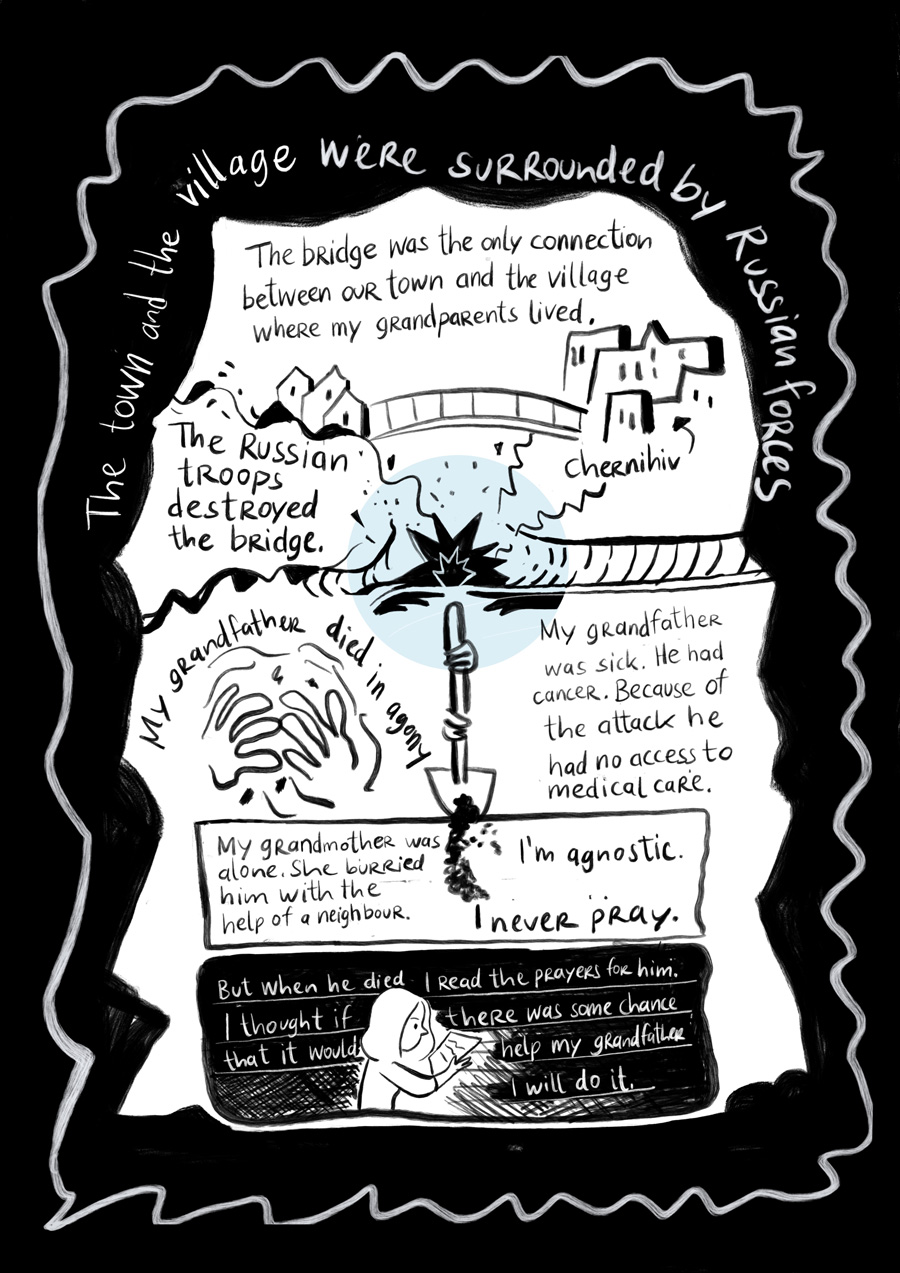 The town and the village were surrounded by Russian forces
The bridge was the only connection
between our town and the village
where my grandparents lived.
Chernihiv
The Russian
troops
destroyed
the bridge.
My grandfather died in agony
My grandfather
was sick. He had
cancer. Because of
the attack he
had no access to
medical care.
My grandmother was
alone. She burried
him with the
help of a neighbour.
I'm agnostic.
I never pray.
But when he died I read the prayers for him.
I thought if there was some chance
that it would help my grandfather
I will do it.